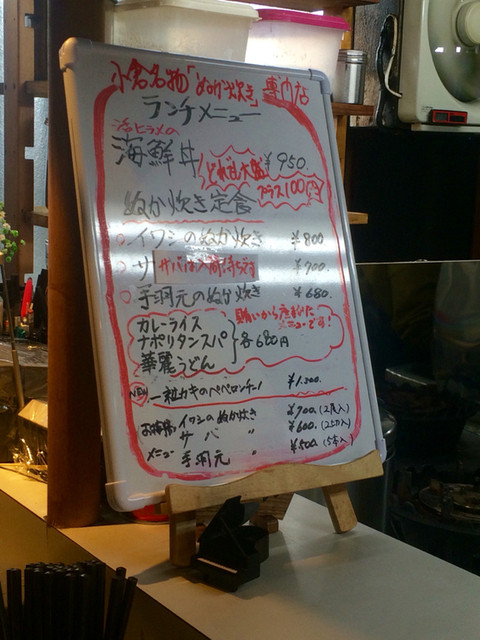 小倉名物「ぬか炊き」専門店
ランチメニュー
活ヒラメの
海鮮丼 ¥950.
どれも大盛
プラス100円
ぬか炊き定食
○イワシのぬか炊き ¥800
○サ サバは入荷待ちです ¥700.
○手羽元のぬか炊き ¥680.
賄いから産まれた
メニューです!
カレーライス
ナポリタンスパ 各680円
華麗うどん
NEW 一粒カキのペペロンチーノ ¥1,200.
お持帰り イワシのぬか炊き ¥700.(2尾入)
サバ 〃 ¥600.(2切入)
メニュー 手羽元 〃 ¥500.(5本入)